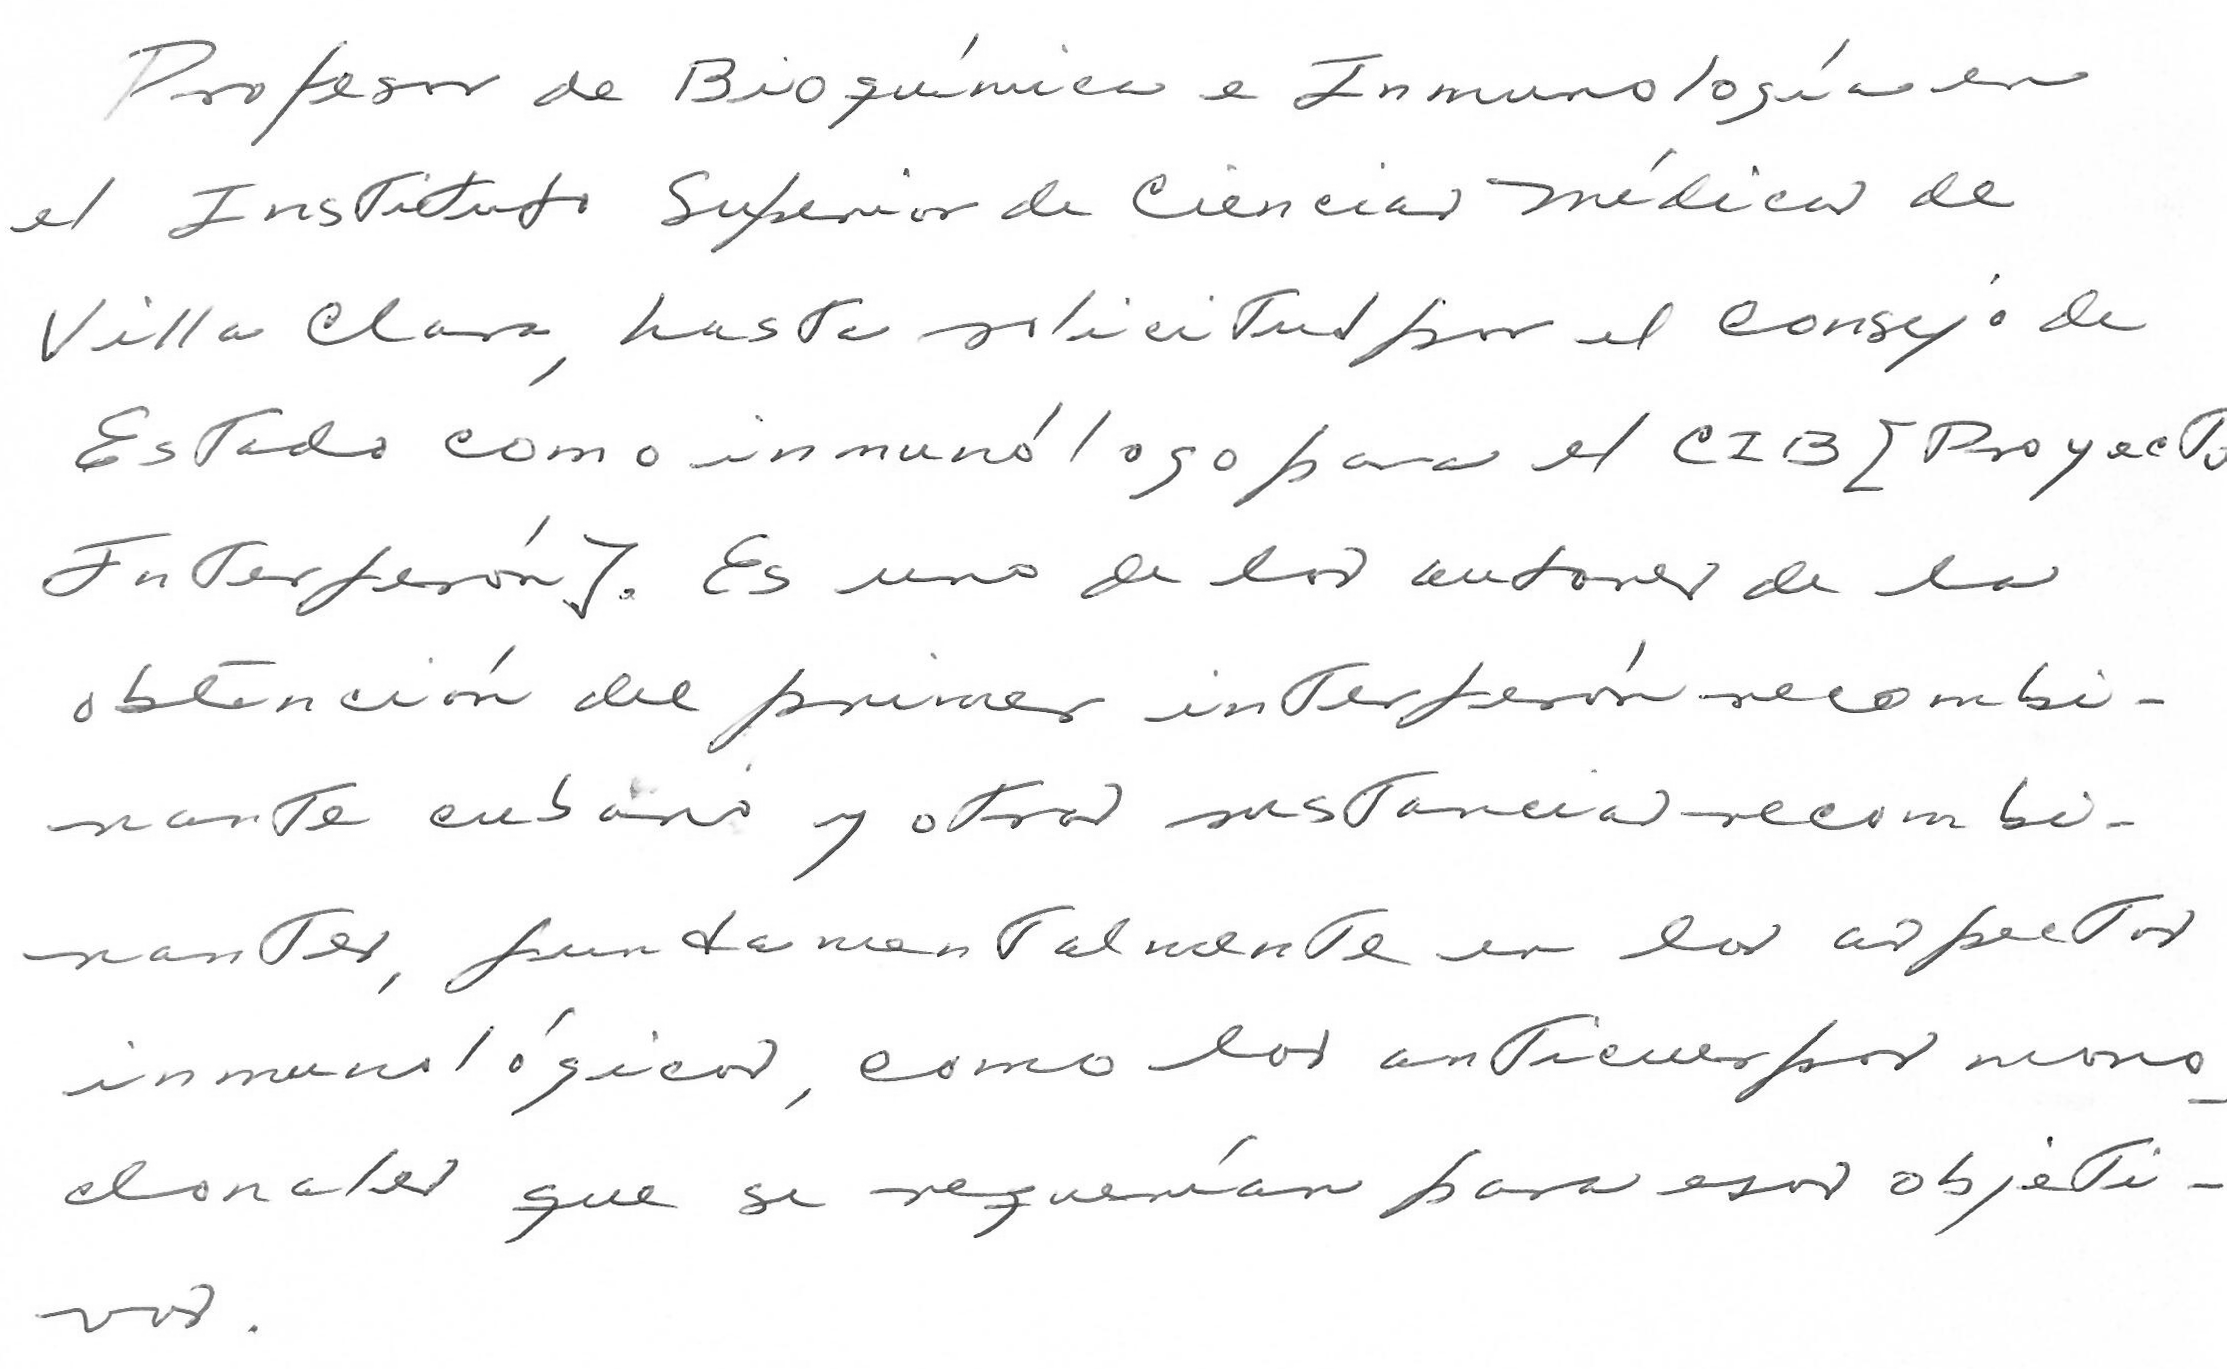 Profesor de Bioquímica e Inmunología en
el Instituto Superior de Ciencias Médicas de
Villa Clara, hasta solicitud por el Consejo de
Estado como inmunólogo para el CIB [Proyecto
Interferón]. Es uno de los autores de la
obtención del primer interferón recombi-
nante cubano y otras sustancias recombi-
nantes, fundamentalmente en los aspectos
inmunológicos, como los anticuerpos mono_
clonales que se requerían para esos objeti-
vos.